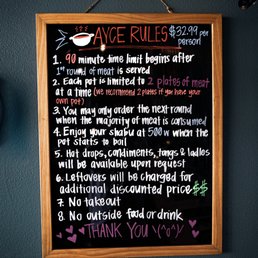 AYCE RULES $32.99 per person!
1. 90 minute time limit begins after
1st round of meat is served
2. Each pot is limited to 2 plates of meat
at a time (we recommend 2 plates if you have your
own pot)
3. You may only order the next round
when the majority of meat is consumed
4. Enjoy your shabu at 500w when the
pot starts to boil
5. Hot drops, condiments, tongs & ladles
will be available upon request
6. Leftovers will be charged for
additional discounted price $$
7. No takeout
8. No outside food or drink
THANK YOU \(^o^)/